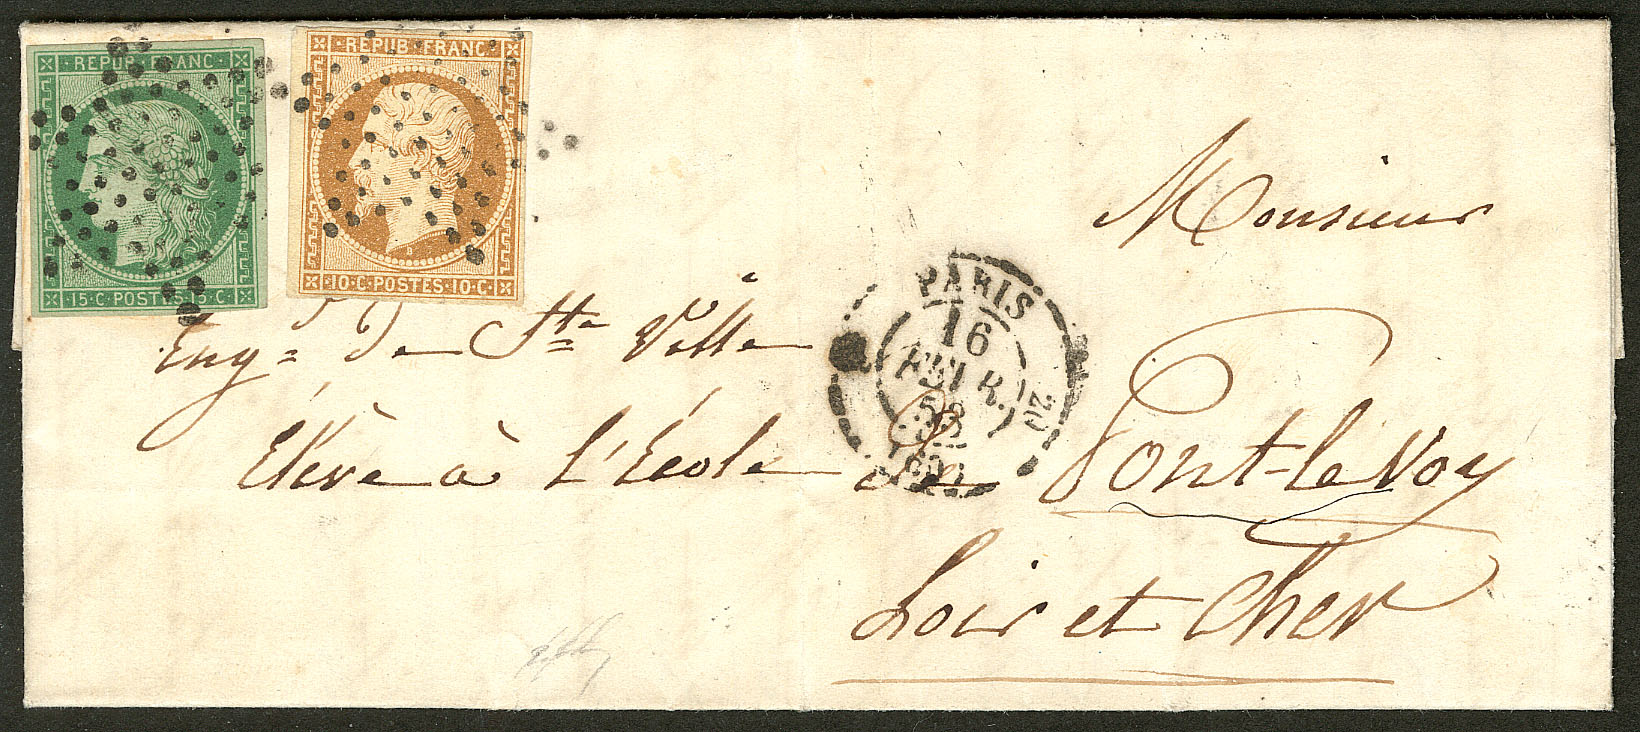 REPUB FRANC
15·C·POSTES·15·C
REPUB·FRANC·
10·C·POSTES·10·C
Monsieur
Eug.e De Ste Ville
Élève à l'École de Pont-le Voy
Loir et Cher
PARIS
16
FEVR.
53
(60)